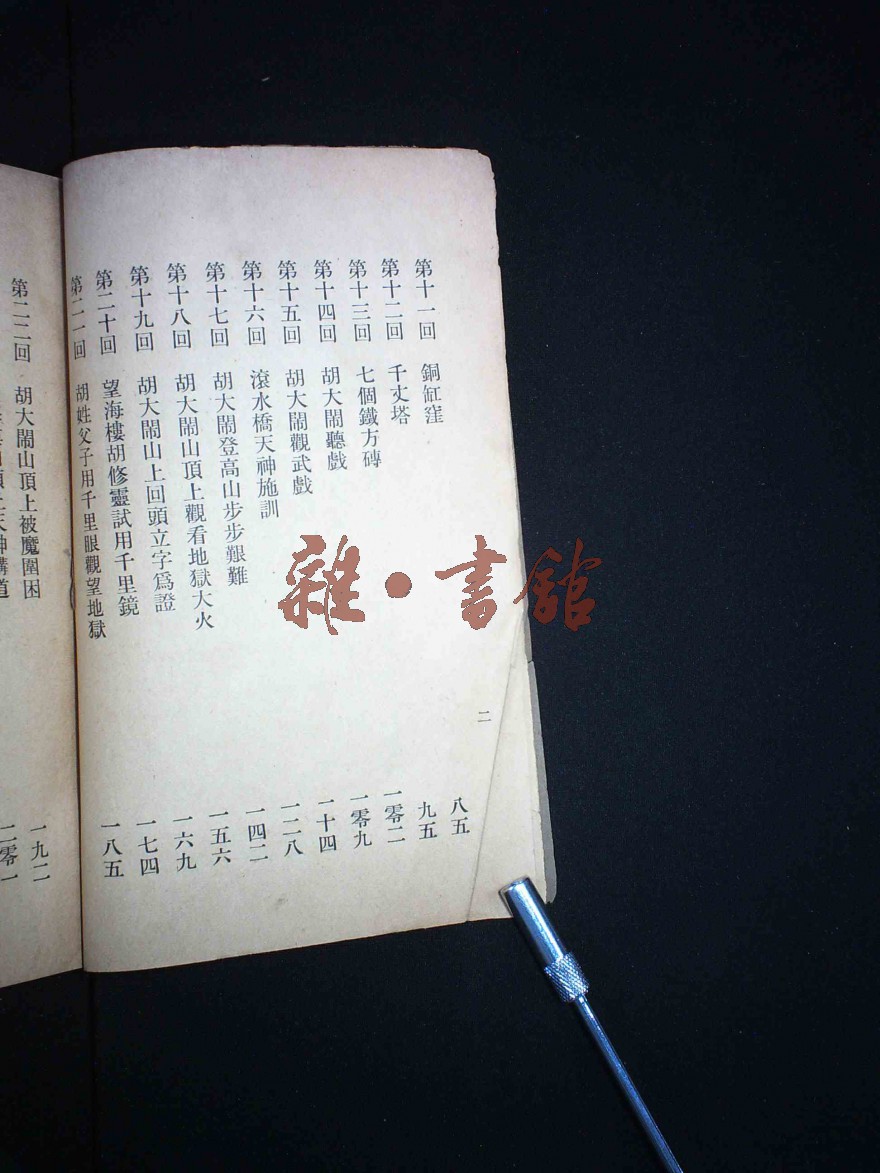 第十一回 銅缸窪 八五
第十二回 千丈塔 九五
第十三回 七個鐵方磚 一零二
第十四回 胡大鬧聽戲 一零九
第十五回 胡大鬧觀武戲 一十四
第十六回 滾水橋天神施訓 一二八
第十七回 胡大鬧登高山步步艱難 一四二
第十八回 胡大鬧山頂上觀看地獄大火 一五六
第十九回 胡大鬧山上回頭立字爲證 一六九
第二十回 望海樓胡修靈試用千里鏡 一七四
第二一回 胡姓父子用千里眼觀望地獄 一八五
二
第二二回 胡大鬧山頂上被魔圍困 一九二
神講道 二零一
雜·書館